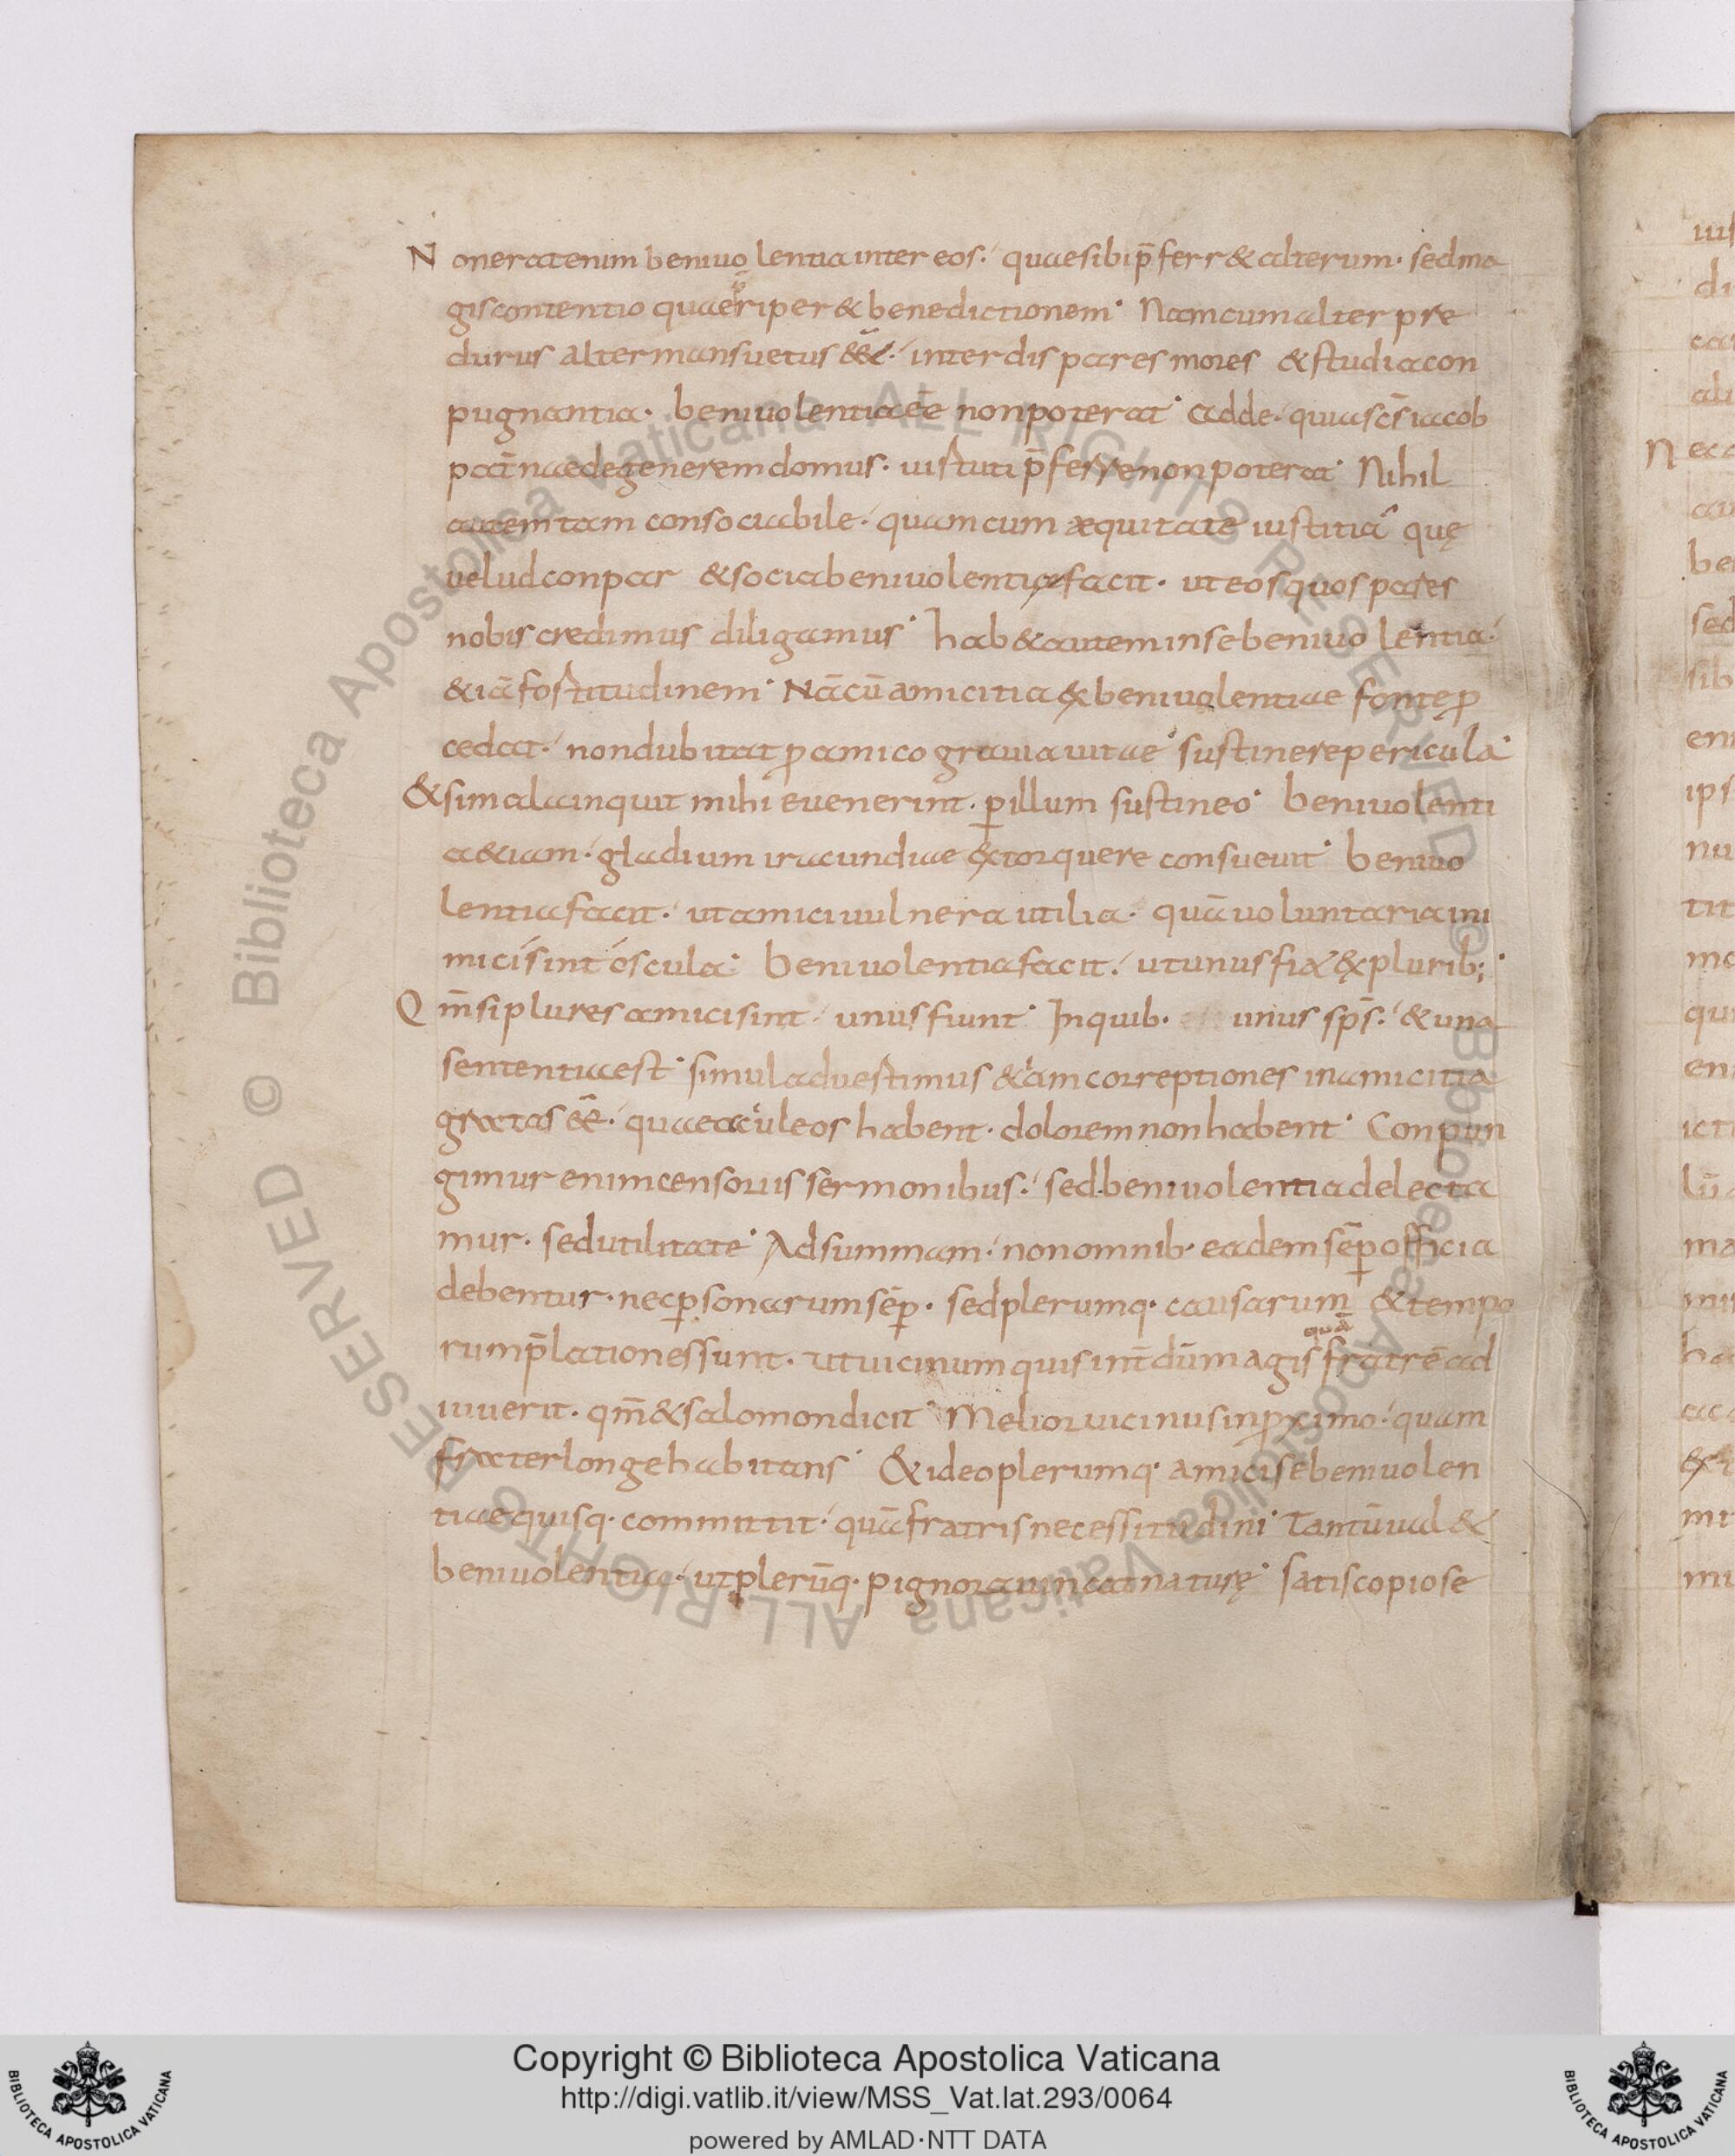 Non erat enim beniuolentia inter eos. quae sibi p̄ferr& alterum. sed ma
gis contentio quae p̄riper& benedictionem. Nam cum alter pre
durus alter mansuetus ess&. inter dispares mores & studia con
pugnantia. beniuolentia eē non poterat. adde. quia scs̄ iacob
pat̄nae degenerem domus. uirtuti p̄ferre non poterat. Nihil
autem tam consociabile. quam cum aequitate iustitia. quę
uelud conpar & socia beniuolentiae facit. ut eos quos pares
nobis credimus diligamus. hab& autem in se beniuolentia.
&iā fortitudinem. Nā cū amicitia ex beniuolentiae fonte ꝓ
cedat. non dubitat ꝓ amico grauia uitae sustinere pericula.
& si mala inquit mihi euenerint. ꝑ illum sustineo. beniuolenti
a &iam. gladium iracundiae extorquere consueuit. beniuo
lentia facit. ut amici uulnera utilia. quā uoluntaria ini
mici sint oscula. beniuolentia facit. ut unus fiat ex plurib;.
Qm̄ si plures amici sint. unus fiunt. In quib. unus sps̄. & una
sententia est. simul aduertimus &iam correptiones in amicitia
gratas eē. quae aculeos habent. dolorem non habent. Conpun
gimur enim censoriis sermonibus. sed beniuolentia delecta
mur. sedutilitate. Ad summam. non omnib. eadem sēꝑ officia
debentur. nec ꝑsonarum sēꝑ. sed plerumq. causarum & tempo
rum p̄lationes sunt. ut uicinum quis int̄dū magis quā fratrē ad
iuuerit. qm̄ & salomon dicit. Melior uicinus in ꝓximo. quam
frater longe habitans. & ideo plerumq. amici se beniuolen
tiae quisq. committit. quā fratris necessitudini. Tantū ual&
beniuolentia. ut plerūq. pignora uincat naturę. satis copiose
iu
di
ca
ali
N ec
au
be
sed
sib
en
ips
nu
tit
mo
qu
en
ict
lū
ma
mi
ha
mi
mi
© Biblioteca Apostolica Vaticana ALL RIGHTS RESERVED
© Biblioteca Apostolica Vaticana ALL RIGHTS RESERVED
BIBLIOTECA APOSTOLICA VATICANA
Copyright © Biblioteca Apostolica Vaticana
http://digi.vatlib.it/view/MSS_Vat.lat.293/0064
powered by AMLAD·NTT DATA
BIBLIOTECA APOSTOLICA VATICANA